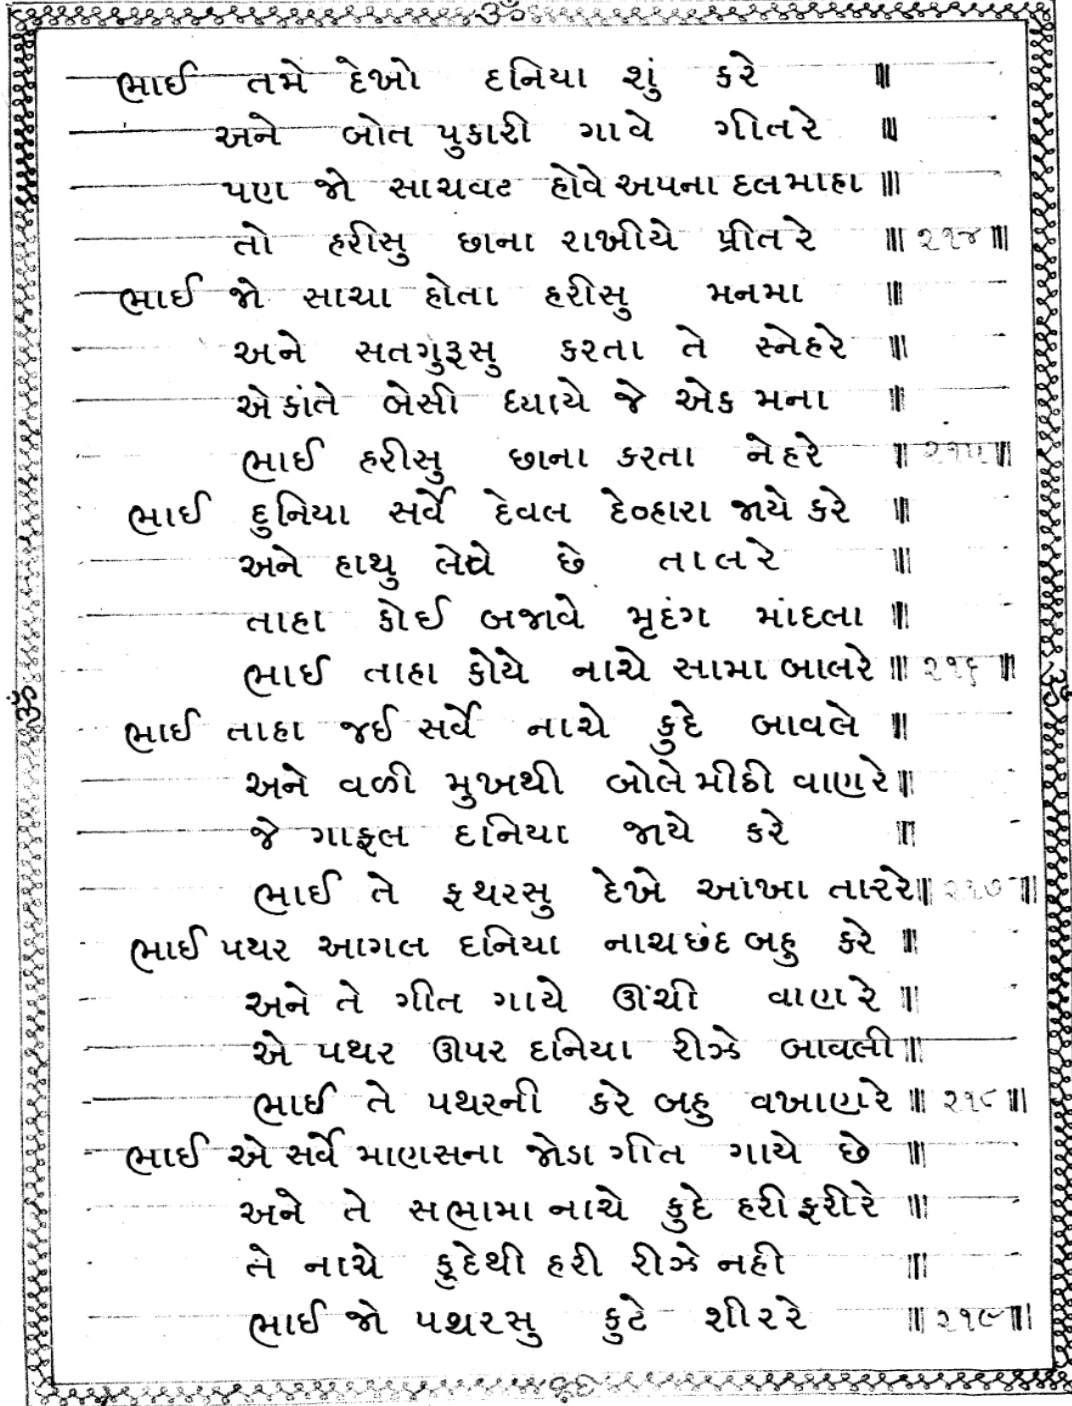 ૐ
ભાઈ તમે દેખો દનિયા શું કરે ॥
અને બોત પુકારી ગાવે ગીતરે ॥
પણ જો સાચવટ હોવે અપના દલમાહા ॥
તો હરીસુ છાના રાખીયે પ્રીતરે ॥ ૨૧૪ ॥
ભાઈ જો સાચા હોતા હરીસુ મનમા ॥
અને સતગુરૂસુ કરતા તે સ્નેહરે ॥
એકાંતે બેસી ધ્યાયે જે એક મના ॥
ભાઈ હરીસુ છાના કરતા નેહરે ॥ ૨૧૫ ॥
ભાઈ દુનિયા સર્વે દેવલ દેવ્હારા જાયે કરે ॥
અને હાથુ લેવે છે તાલરે ॥
તાહા કોઈ બજાવે મૃદંગ માંદલા ॥
ભાઈ તાહા કોયે નાચે સામા બાલરે ॥ ૨૧૬ ॥
ભાઈ તાહા જઈ સર્વે નાચે કુદે બાવલે ॥
અને વળી મુખથી બોલે મીઠી વાણરે ॥
જે ગાફલ દનિયા જાયે કરે ॥
ભાઈ તે ફથરસુ દેખે આંખા તારરે ॥ ૨૧૭ ॥
ભાઈ પથર આગલ દનિયા નાચછંદ બહુ કરે ॥
અને તે ગીત ગાયે ઊંચી વાણરે ॥
એ પથર ઊપર દનિયા રીઝે બાવલી ॥
ભાઈ તે પથરની કરે બહુ વખાણરે ॥ ૨૧૮ ॥
ભાઈ એ સર્વે માણસના જોડા ગીત ગાયે છે ॥
અને તે સભામા નાચે કુદે હરી ફરીરે ॥
તે નાચે કૂદેથી હરી રીઝે નહી ॥
ભાઈ જો પથરસુ કુટે શીરરે ॥ ૨૧૯ ॥